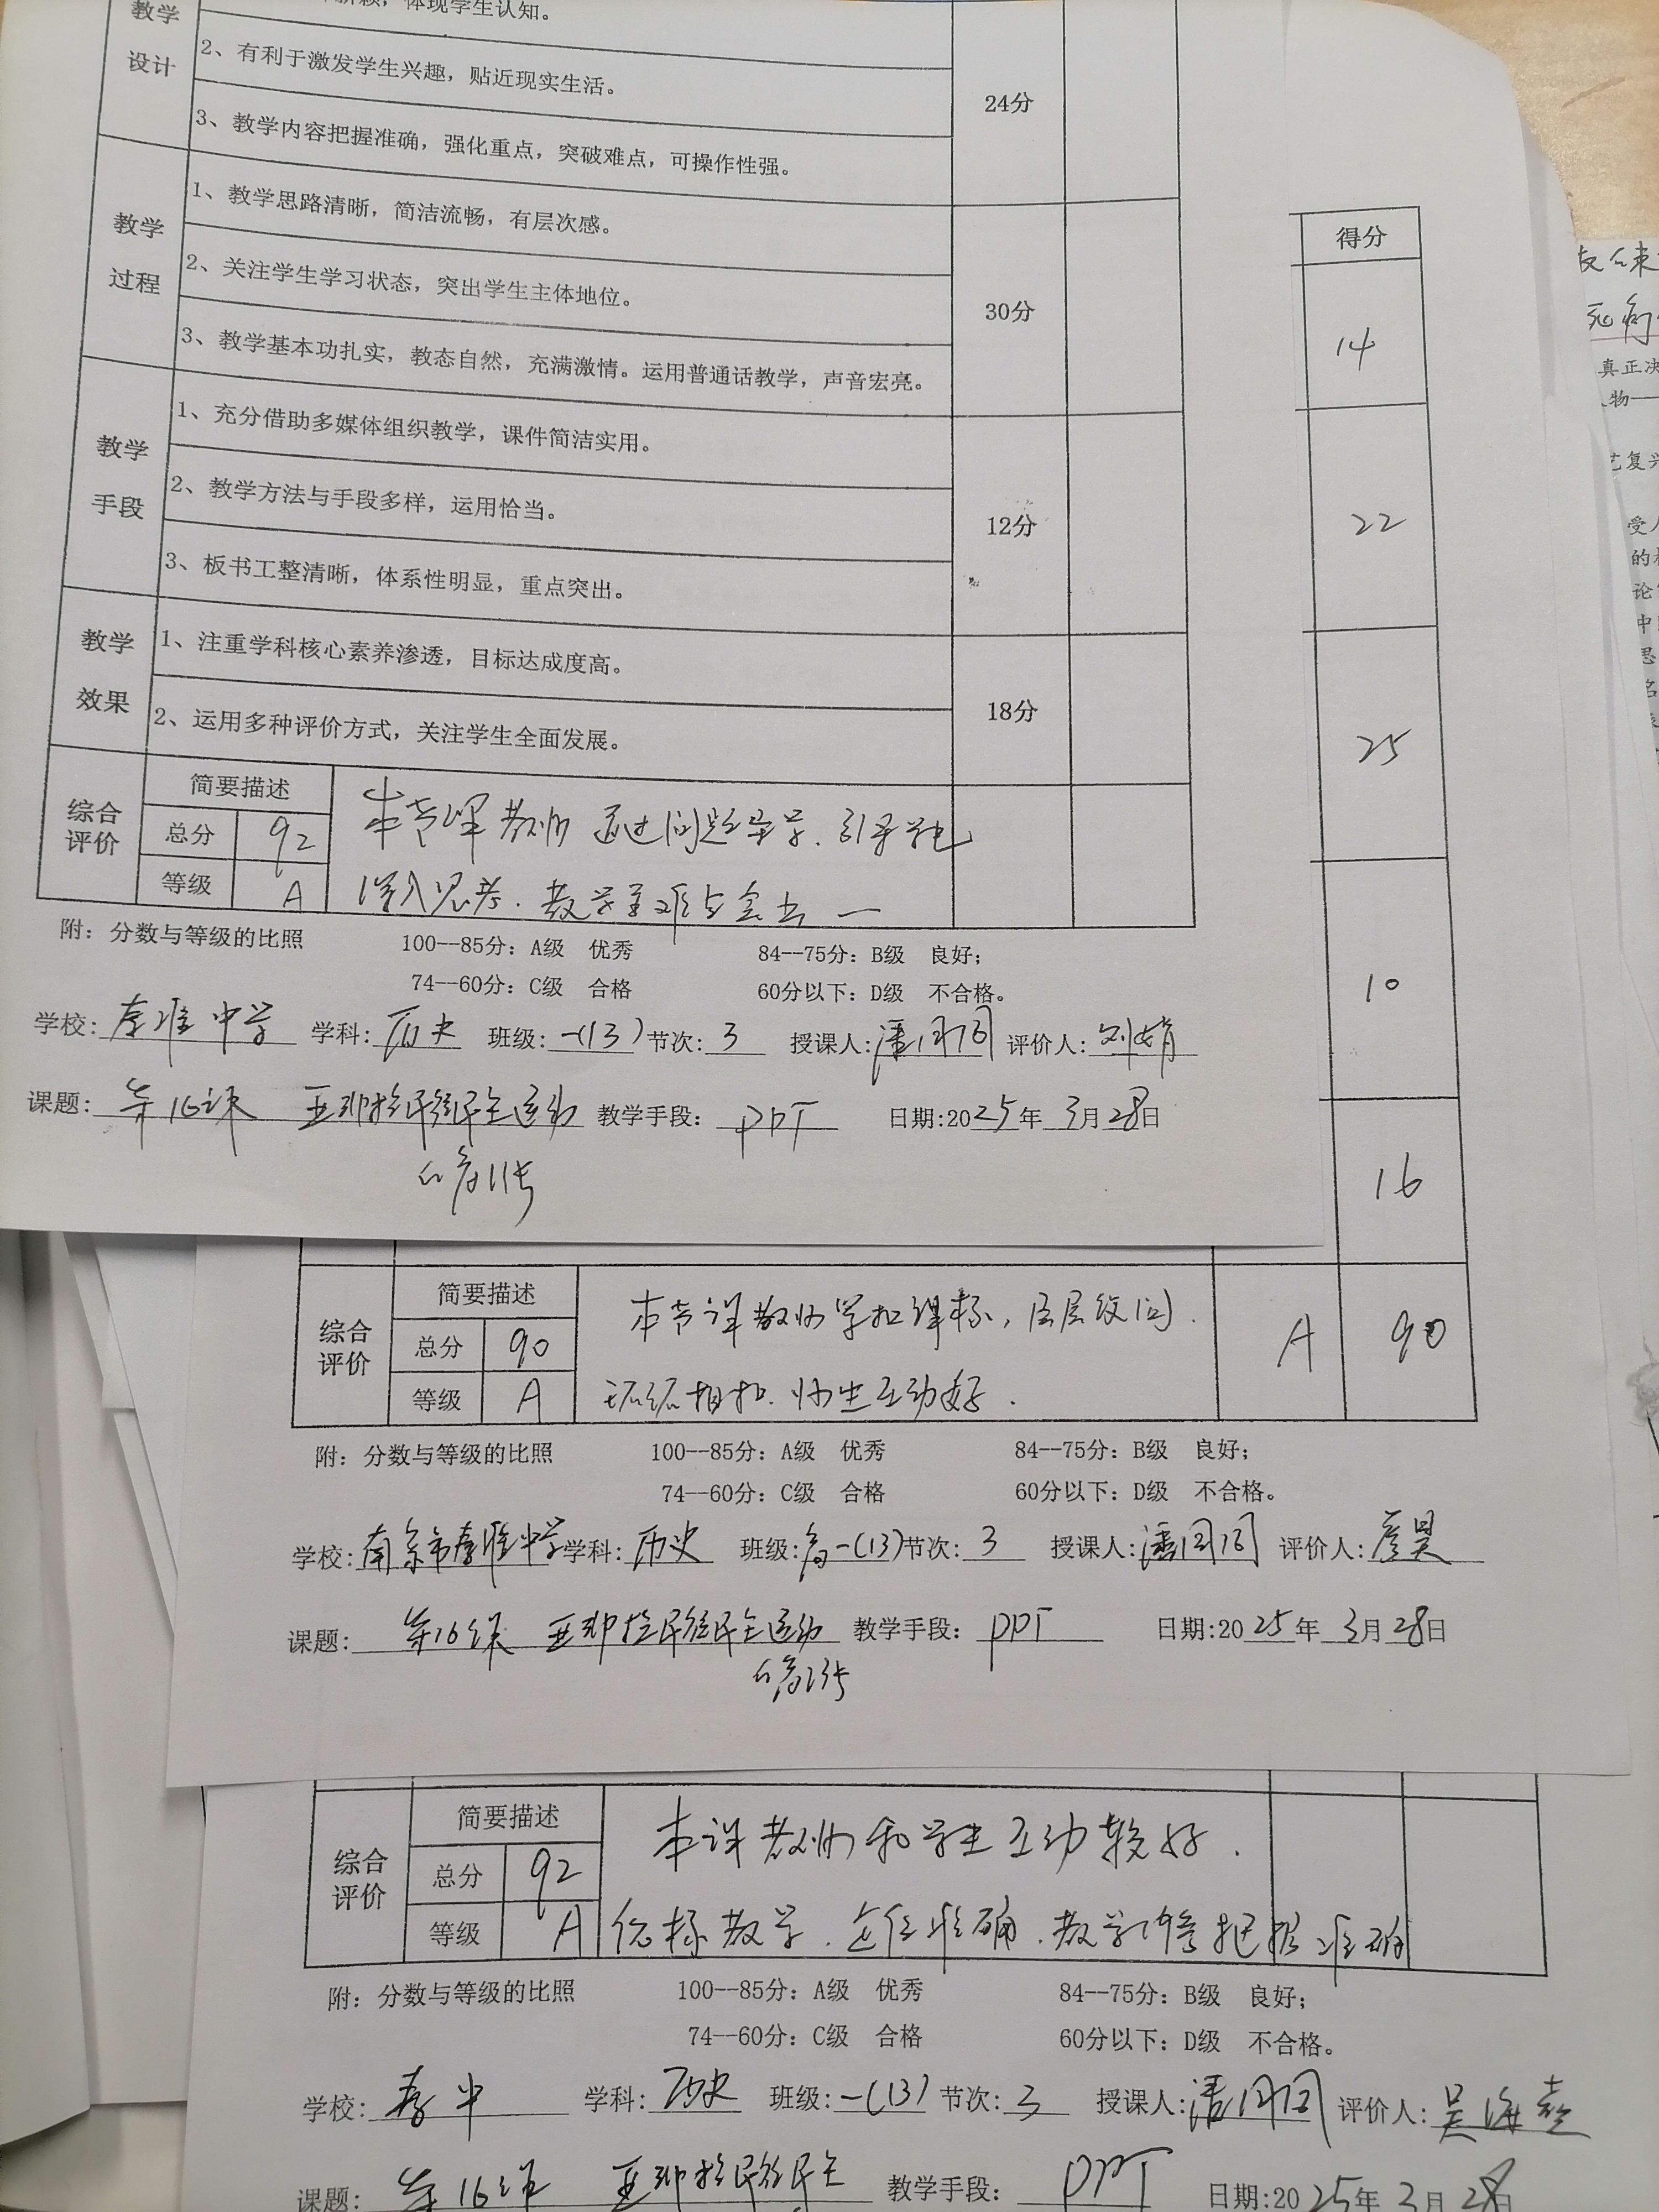 教学
设计
体现学生认知。
2、有利于激发学生兴趣，贴近现实生活。
3、教学内容把握准确，强化重点，突破难点，可操作性强。
24分
教学
过程
1、教学思路清晰，简洁流畅，有层次感。
2、关注学生学习状态，突出学生主体地位。
3、教学基本功扎实，教态自然，充满激情。运用普通话教学，声音宏亮。
30分
教学
手段
1、充分借助多媒体组织教学，课件简洁实用。
2、教学方法与手段多样，运用恰当。
3、板书工整清晰，体系性明显，重点突出。
12分
教学
效果
1、注重学科核心素养渗透，目标达成度高。
2、运用多种评价方式，关注学生全面发展。
18分
综合
评价
简要描述
总分 92
等级 A
本节课教师通过问题导学，引导学生
深入思考，教学重难点突出
附：分数与等级的比照 100--85分：A级 优秀 84--75分：B级 良好；
74--60分：C级 合格 60分以下：D级 不合格。
学校：秦淮中学 学科：历史 班级：一(13) 节次：3 授课人：潘同同 评价人：刘娟
课题：第16课 亚非拉民族民主运动 教学手段：PPT 日期：2025年3月28日
的高涨
得分
14
22
25
10
16
综合
评价
简要描述
总分 90
等级 A
本节课教师紧扣课标，层层设问，
环环相扣，师生互动好。
A 90
附：分数与等级的比照 100--85分：A级 优秀 84--75分：B级 良好；
74--60分：C级 合格 60分以下：D级 不合格。
学校：南京市秦淮中学 学科：历史 班级：高一(13) 节次：3 授课人：潘同同 评价人：彦昊
课题：第16课 亚非拉民族民主运动 教学手段：PPT 日期：2025年3月28日
的高涨
综合
评价
简要描述
总分 92
等级 A
本课教师和学生互动较好。
教学，定位准确，教学内容把握准确
附：分数与等级的比照 100--85分：A级 优秀 84--75分：B级 良好；
74--60分：C级 合格 60分以下：D级 不合格。
学校：秦中 学科：历史 班级：一(13) 节次：3 授课人：潘同同 评价人：吴海
课题：第16课 亚非拉民族民主 教学手段：PPT 日期：2025年3月28日
真正决
物一
艺复兴
受人
的
论
中
思
名